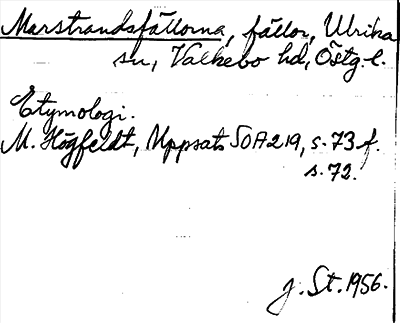 Marstrandsfällorna, fällor, Ulrika
sn, Valkebo hd, Östg. l.
Etymologi.
M. Högfeldt, Uppsats SOA 219, s. 73 f.
s. 72.
J. St. 1956.